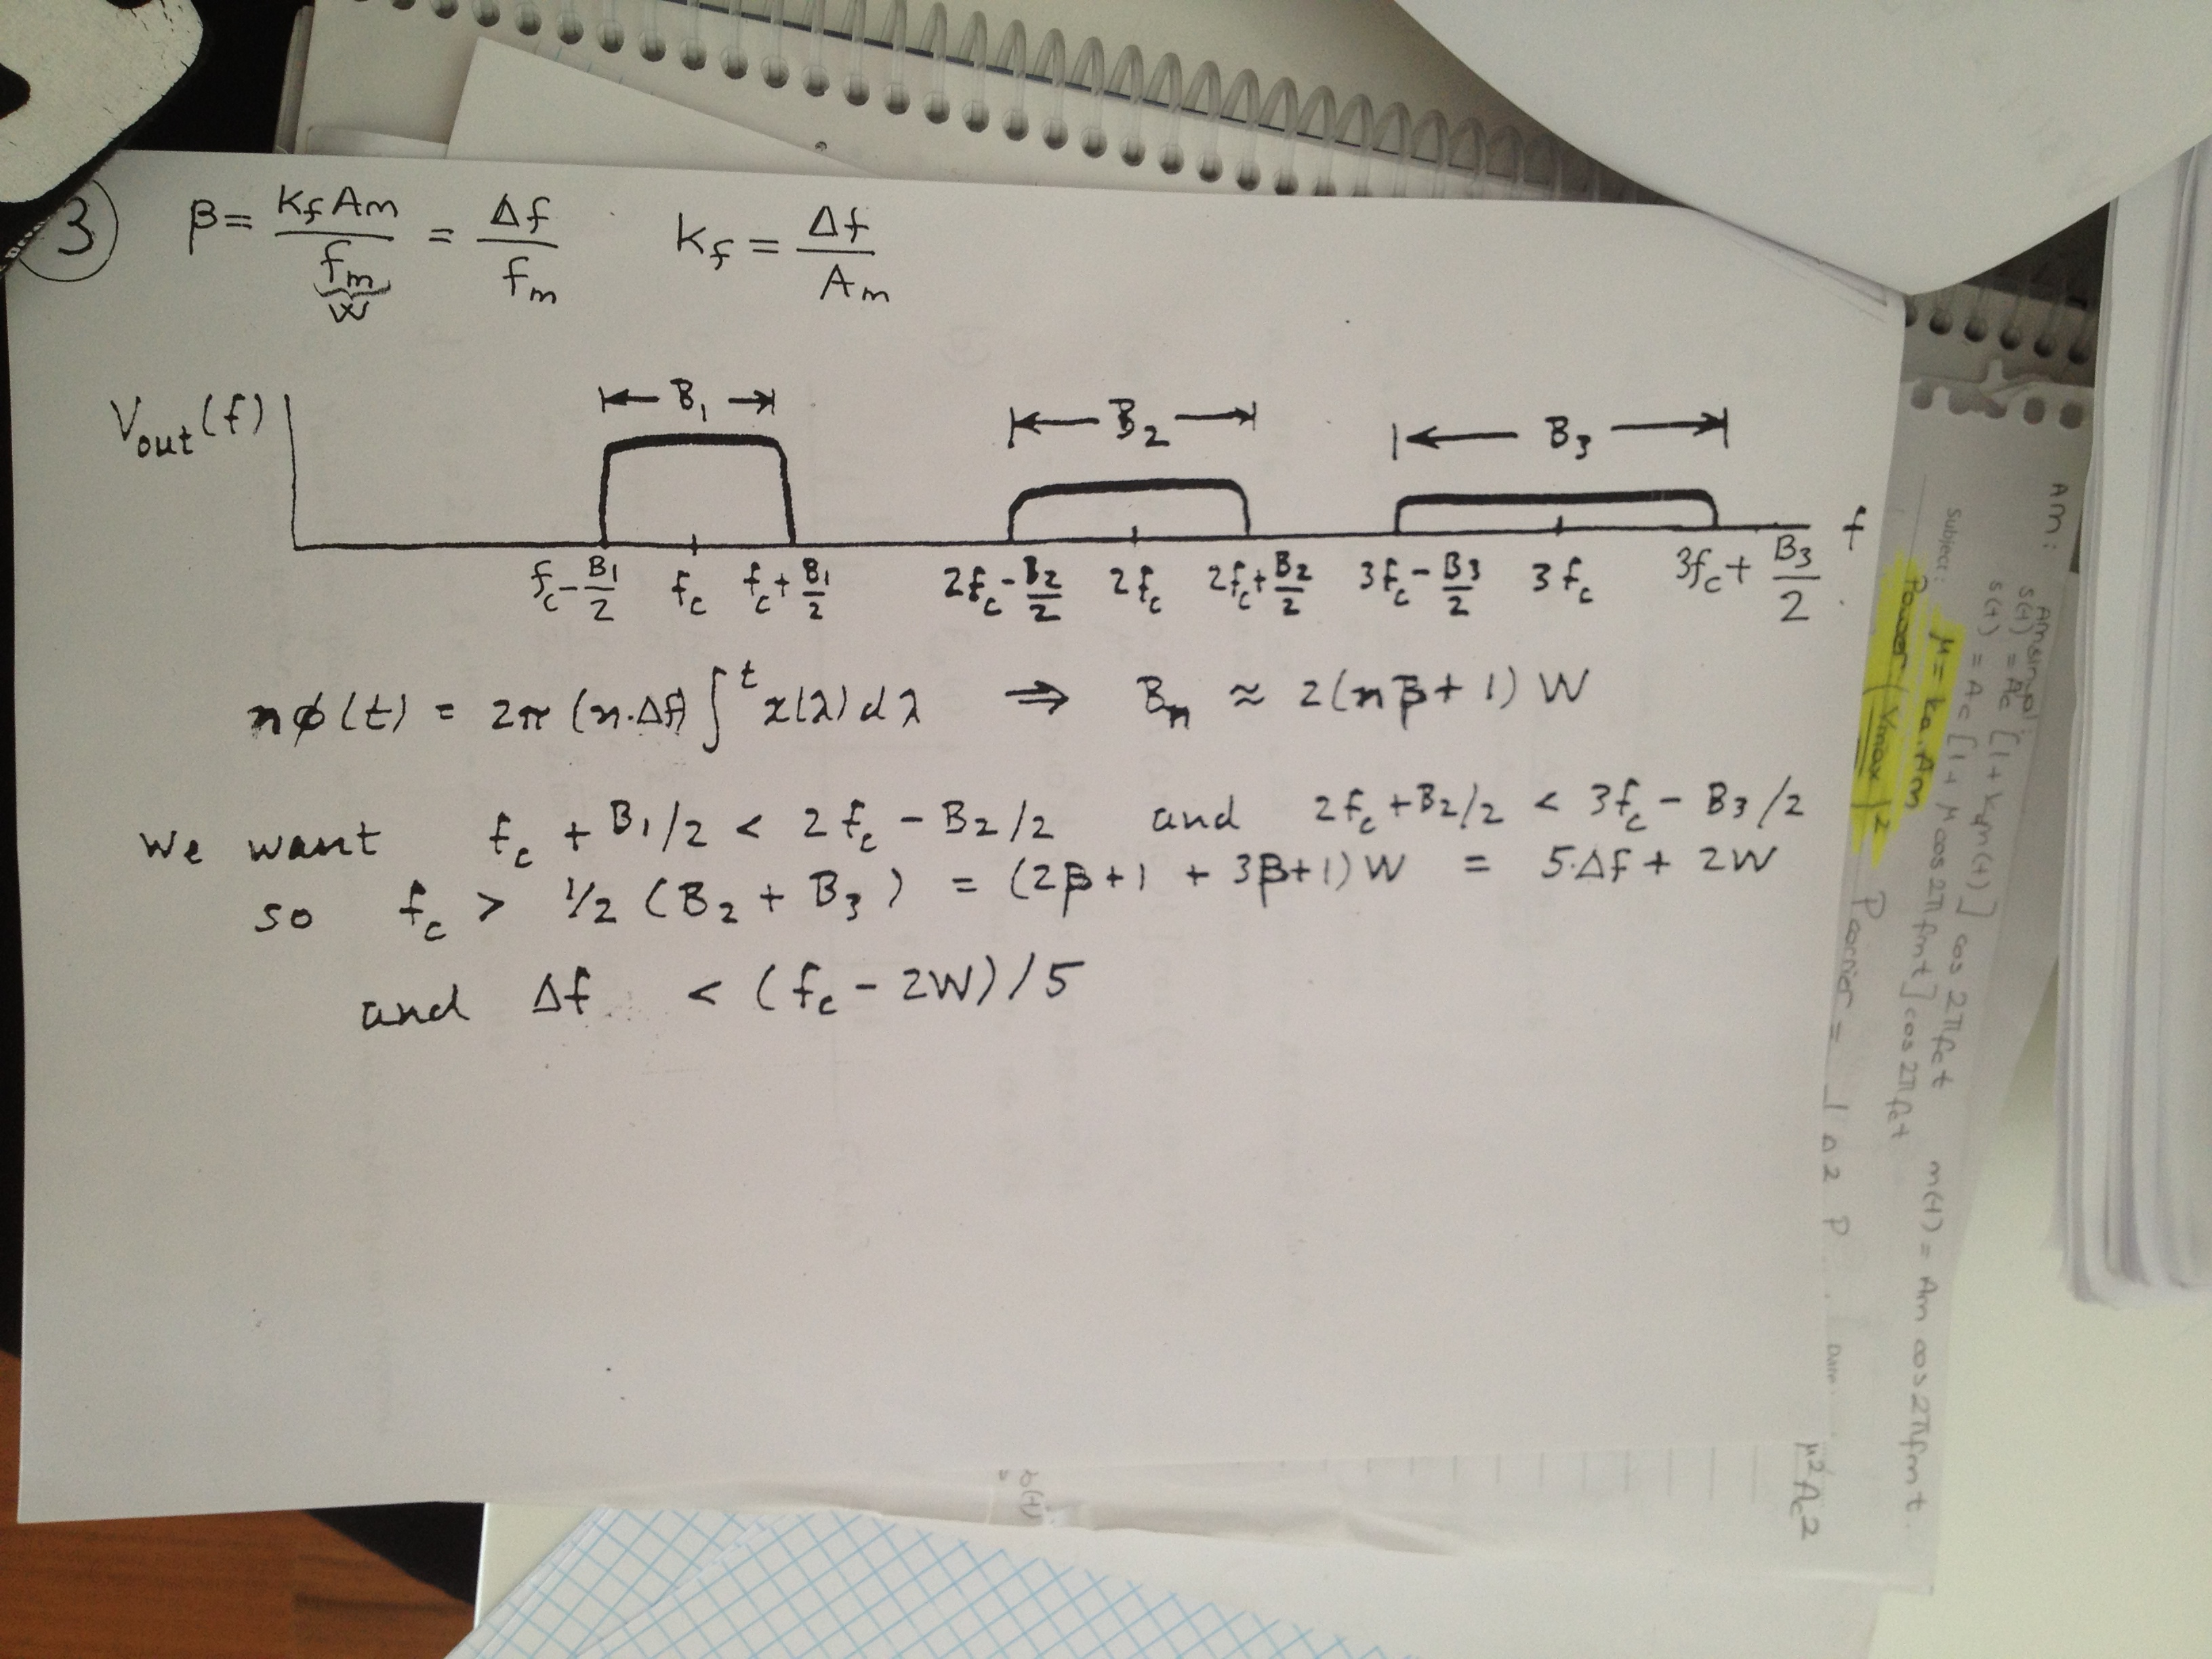 3 β = K_f A_m / f_m = Δf / f_m K_f = Δf / A_m
W
V_out(f) B_1 B_2 B_3
f
f_c - B_1/2 f_c f_c + B_1/2 2f_c - B_2/2 2f_c 2f_c + B_2/2 3f_c - B_3/2 3f_c 3f_c + B_3/2
nφ(t) = 2π (n·Δf) ∫^t x(λ) dλ ⇒ B_n ≈ 2(nβ+1) W
We want f_c + B_1/2 < 2f_c - B_2/2 and 2f_c + B_2/2 < 3f_c - B_3/2
so f_c > 1/2 (B_2 + B_3) = (2β+1 + 3β+1)W = 5·Δf + 2W
and Δf < (f_c - 2W)/5
AM:
s(t) = A_c [1 + k_a m(t)] cos 2πf_c t m(t) = A_m cos 2πf_m t
s(t) = A_c [1 + μ cos 2πf_m t] cos 2πf_c t
Subject:
μ = k_a · A_m
Power |V_max|^2
P_carrier =
μ^2 A_c^2